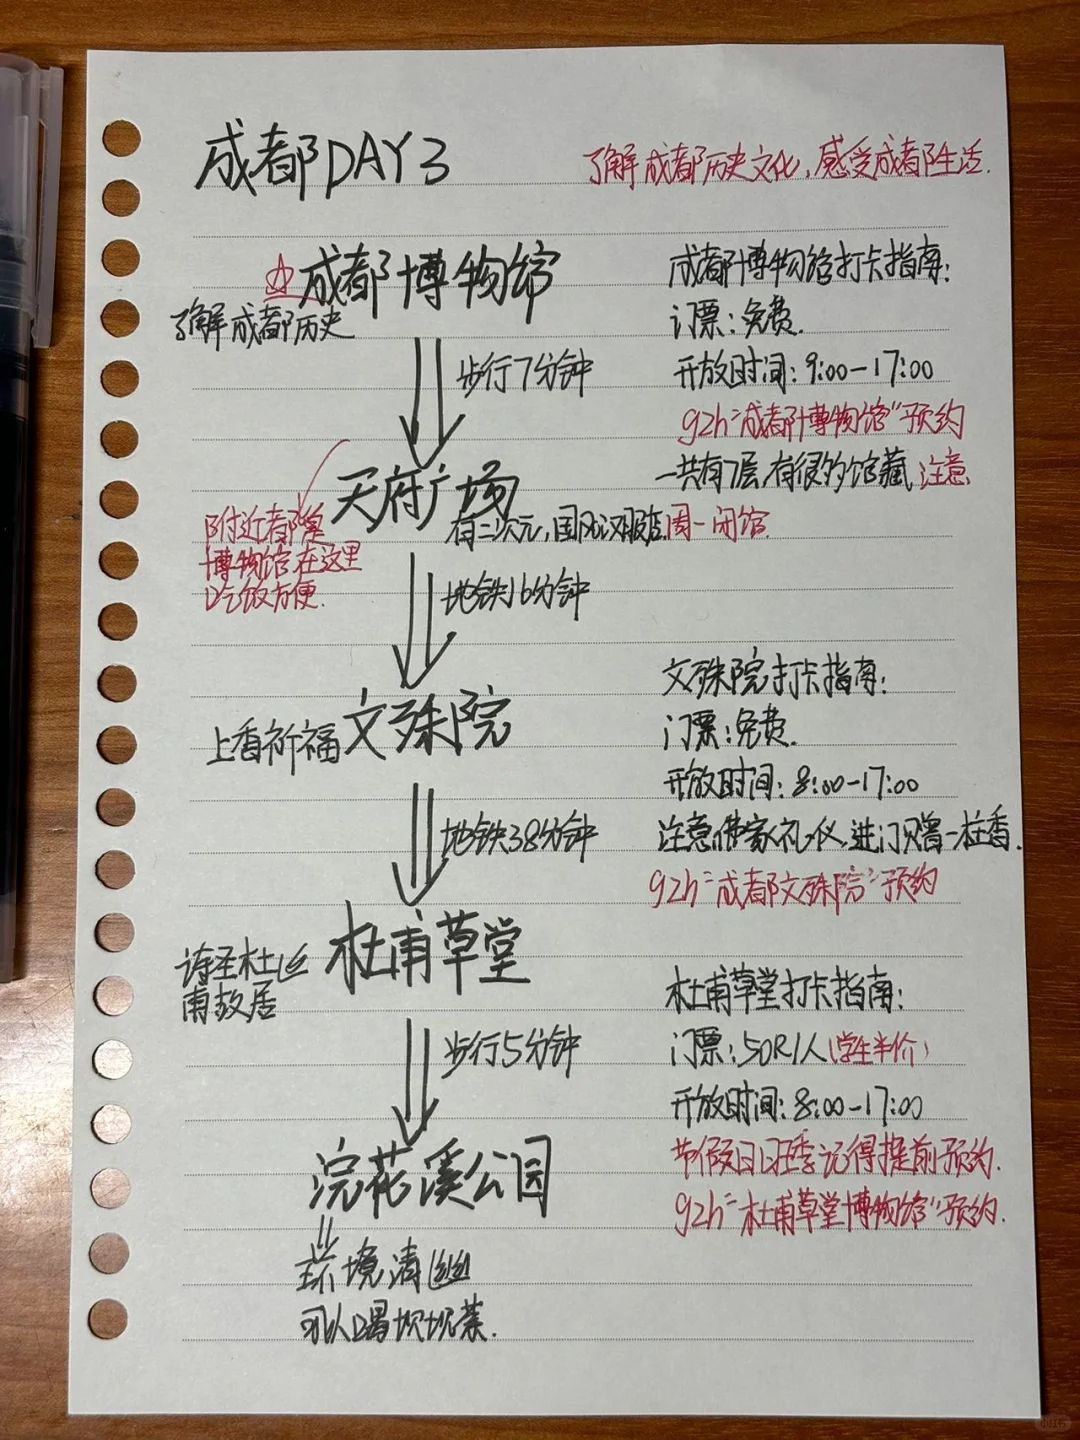 成都DAY3
了解成都历史文化,感受成都生活.
☆成都博物馆
了解成都历史
步行7分钟
成都博物馆打卡指南:
门票:免费.
开放时间:9:00-17:00
gzh“成都博物馆”预约
一共有7层,有很多馆藏,注意
周一闭馆.
天府广场
有二次元,国风汉服店.
附近都是
博物馆,在这里
吃饭方便.
地铁16分钟
文殊院
上香祈福
地铁38分钟
文殊院打卡指南:
门票:免费.
开放时间:8:00-17:00
注意佛家礼仪,进门赠一柱香.
gzh“成都文殊院”预约
杜甫草堂
诗圣杜
甫故居
步行5分钟
杜甫草堂打卡指南:
门票:50R/人(学生半价)
开放时间:8:00-17:00
节假日旺季记得提前预约.
gzh“杜甫草堂博物馆”预约.
浣花溪公园
环境清幽
可以喝坝坝茶.